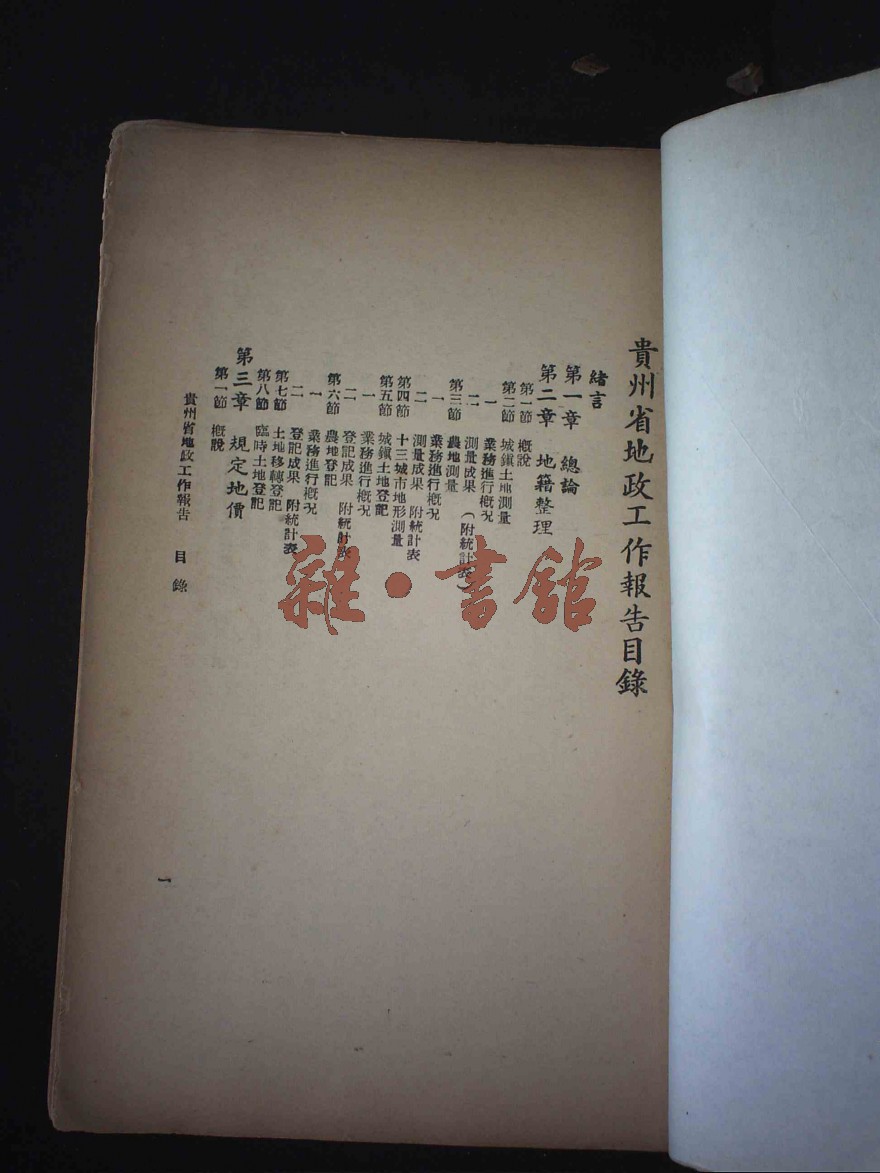 貴州省地政工作報告目錄
緒言
第一章 總論
第二章 地籍整理
第一節 概說
第二節 城鎮土地測量
一 業務進行概況
二 測量成果 (附統計表)
第三節 農地測量
一 業務進行概況
二 測量成果 附統計表
第四節 十三城市地形測量
第五節 城鎮土地登記
一 業務進行概況
二 登記成果 附統計表
第六節 農地登記
一 業務進行概況
二 登記成果 附統計表
第七節 土地移轉登記
第八節 臨時土地登記
第三章 規定地價
第一節 概說
貴州省地政工作報告 目錄
一
雜·書館